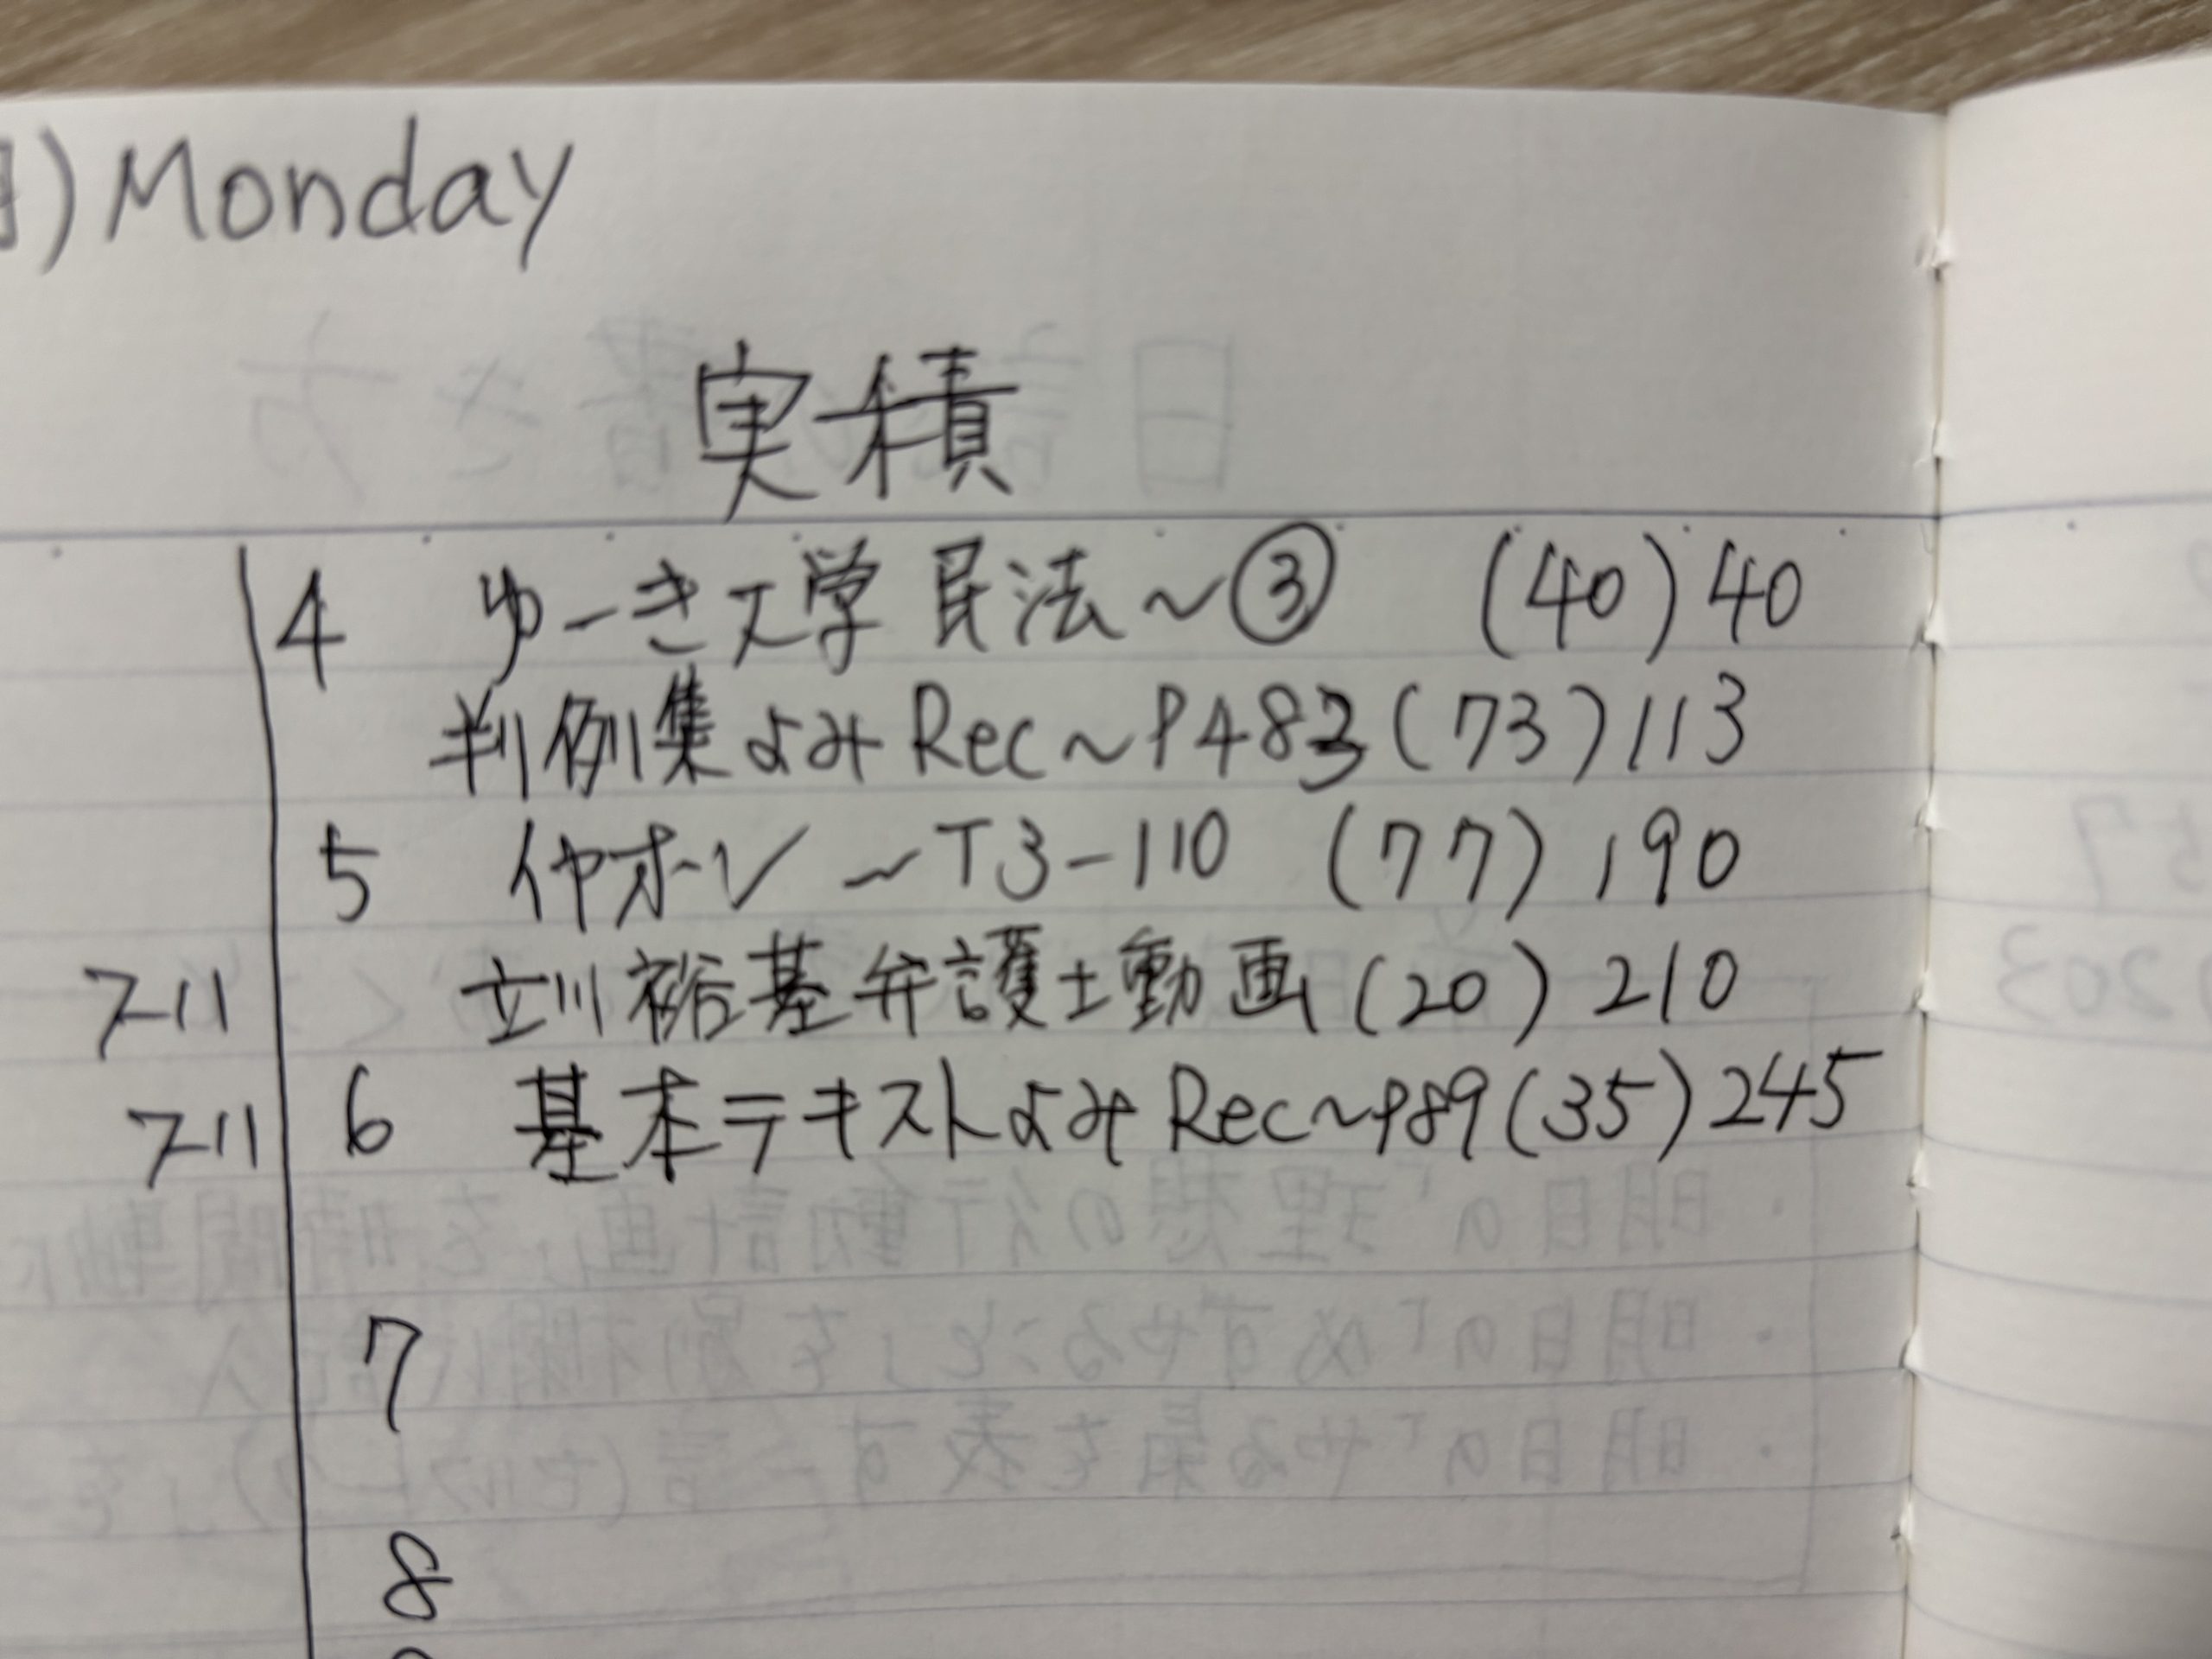 ) Monday
実積
4 ゆーき大学 民法~③ (40) 40
判例集よみRec~P483 (73) 113
5 イヤオーレ ~T3-110 (77) 190
7-11 立川裕基弁護士動画 (20) 210
7-11 6 基本テキストよみRec~P89 (35) 245
7
8